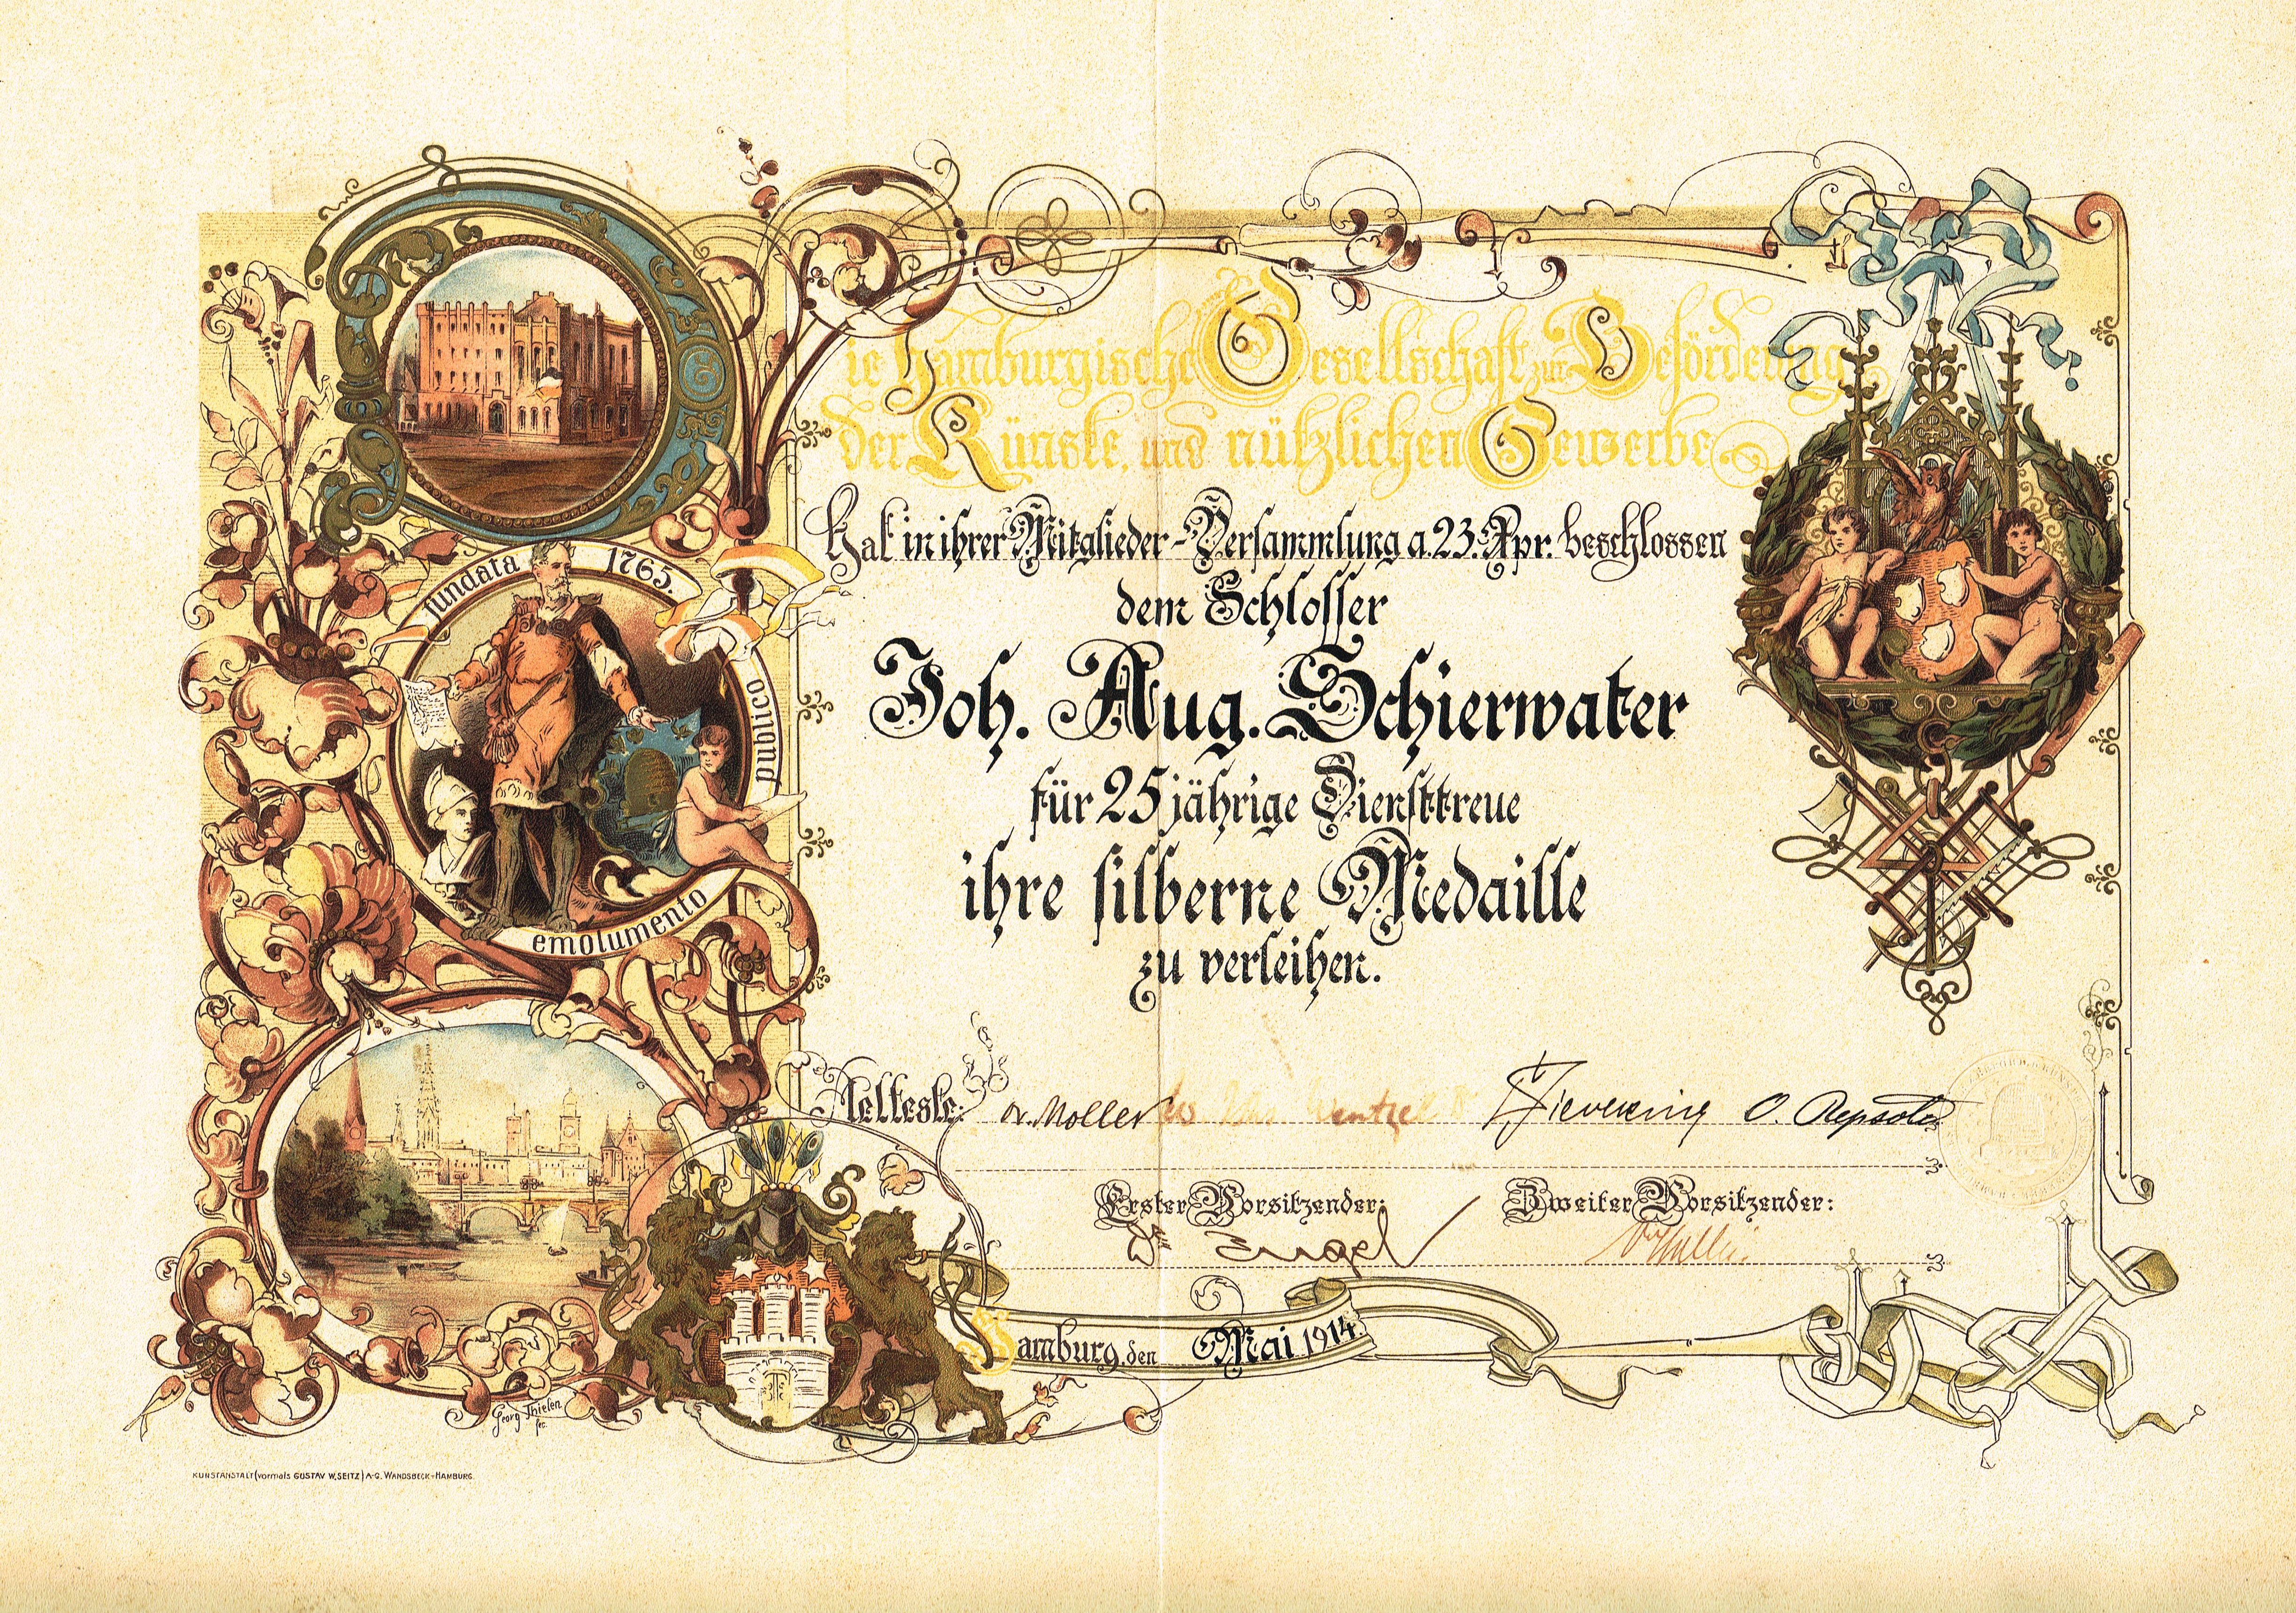 Die Hamburgische Gesellschaft zur Beförderung
der Künste und nützlichen Gewerbe
hat in ihrer Mitglieder-Versammlung a. 23. Apr. beschlossen
dem Schlosser
Joh. Aug. Schierwater
für 25 jährige Diensttreue
ihre silberne Medaille
zu verleihen.
Aelteste: Dr. Moller Wentzel Sieveking O. Repsold
Erster Vorsitzender: Zweiter Vorsitzender:
Dr. Engel
Hamburg, den Mai 1914.
fundata 1765.
emolumento
publico
Georg Thielen
fec.
KUNSTANSTALT (vormals GUSTAV W. SEITZ) A-G. WANDSBECK-HAMBURG.